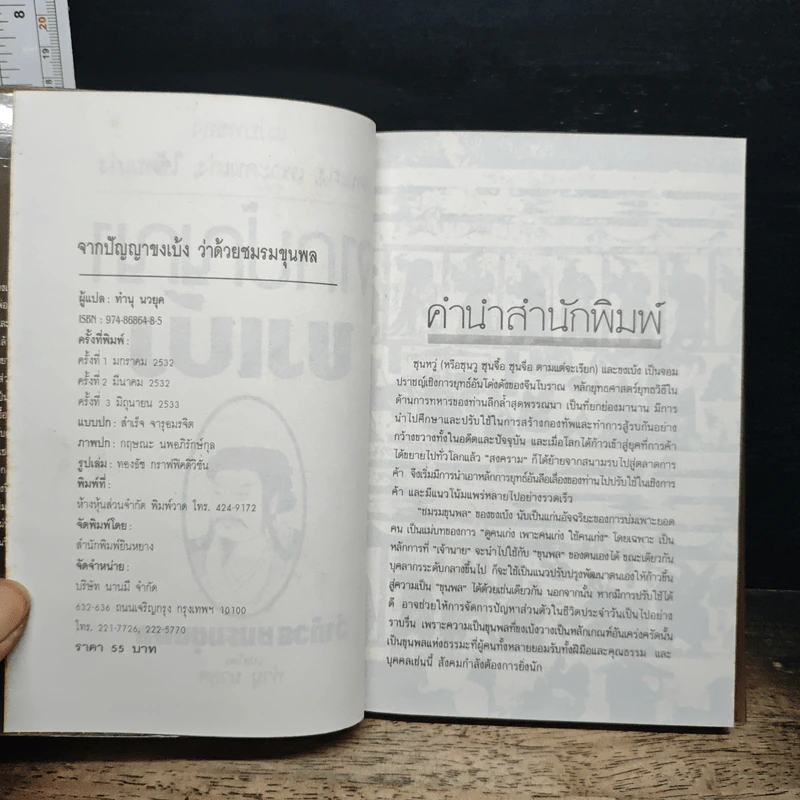 จากปัญญาขงเบ้ง ว่าด้วยชมรมขุนพล
ผู้แปล : ทำนุ นวยุค
ISBN : 974-86864-8-5
ครั้งที่พิมพ์ :
ครั้งที่ 1 มกราคม 2532
ครั้งที่ 2 มีนาคม 2532
ครั้งที่ 3 มิถุนายน 2533
แบบปก : สำเร็จ จารุอมรจิต
ภาพปก : กฤษณะ นพอภิรักษ์กุล
รูปเล่ม : ทองธัช กราฟฟิคดีวิชั่น
พิมพ์ที่ :
ห้างหุ้นส่วนจำกัด พิมพ์วาด โทร. 424-9172
จัดพิมพ์โดย :
สำนักพิมพ์ยินหยาง
จัดจำหน่าย :
บริษัท นานมี จำกัด
632-636 ถนนเจริญกรุง กรุงเทพฯ 10100
โทร. 221-7726, 222-5770
ราคา 55 บาท
คำนำสำนักพิมพ์
ซุนหวู่ (หรือซุนวู ซุนจื๊อ ซุนจื่อ ตามแต่จะเรียก) และขงเบ้ง เป็นจอม
ปราชญ์เชิงการยุทธ์อันโด่งดังของจีนโบราณ หลักยุทธศาสตร์ยุทธวิธีใน
ด้านการทหารของท่านลึกล้ำสุดพรรณนา เป็นที่ยกย่องมานาน มีการ
นำไปศึกษาและปรับใช้ในการสร้างกองทัพและทำการสู้รบกันอย่าง
กว้างขวางทั้งในอดีตและปัจจุบัน และเมื่อโลกได้ก้าวเข้าสู่ยุคที่การค้า
ได้ขยายไปทั่วโลกแล้ว "สงคราม" ก็ได้ย้ายจากสนามรบไปสู่ตลาดการ
ค้า จึงเริ่มมีการนำเอาหลักการยุทธ์อันลือเลื่องของท่านไปปรับใช้ในเชิงการ
ค้า และมีแนวโน้มแพร่หลายไปอย่างรวดเร็ว
"ชมรมขุนพล" ของขงเบ้ง นับเป็นแก่นอัจฉริยะของการบ่มเพาะยอด
คน เป็นแม่บทของการ "ดูคนเก่ง เพาะคนเก่ง ใช้คนเก่ง" โดยเฉพาะ เป็น
หลักการที่ "เจ้านาย" จะนำไปใช้กับ "ขุนพล" ของตนเองได้ ขณะเดียวกัน
บุคลากรระดับกลางขึ้นไป ก็จะใช้เป็นแนวปรับปรุงพัฒนาตนเองให้ก้าวขึ้น
สู่ความเป็น "ขุนพล" ได้ด้วยเช่นเดียวกัน นอกจากนั้น หากมีการปรับใช้ได้
ดี อาจช่วยให้การจัดการปัญหาส่วนตัวในชีวิตประจำวันเป็นไปอย่าง
ราบรื่น เพราะความเป็นขุนพลที่ขงเบ้งวางเป็นหลักเกณฑ์อันเคร่งครัดนั้น
เป็นขุนพลแห่งธรรมะที่ผู้คนทั้งหลายยอมรับทั้งฝีมือและคุณธรรม และ
บุคคลเช่นนี้ สังคมกำลังต้องการยิ่งนัก